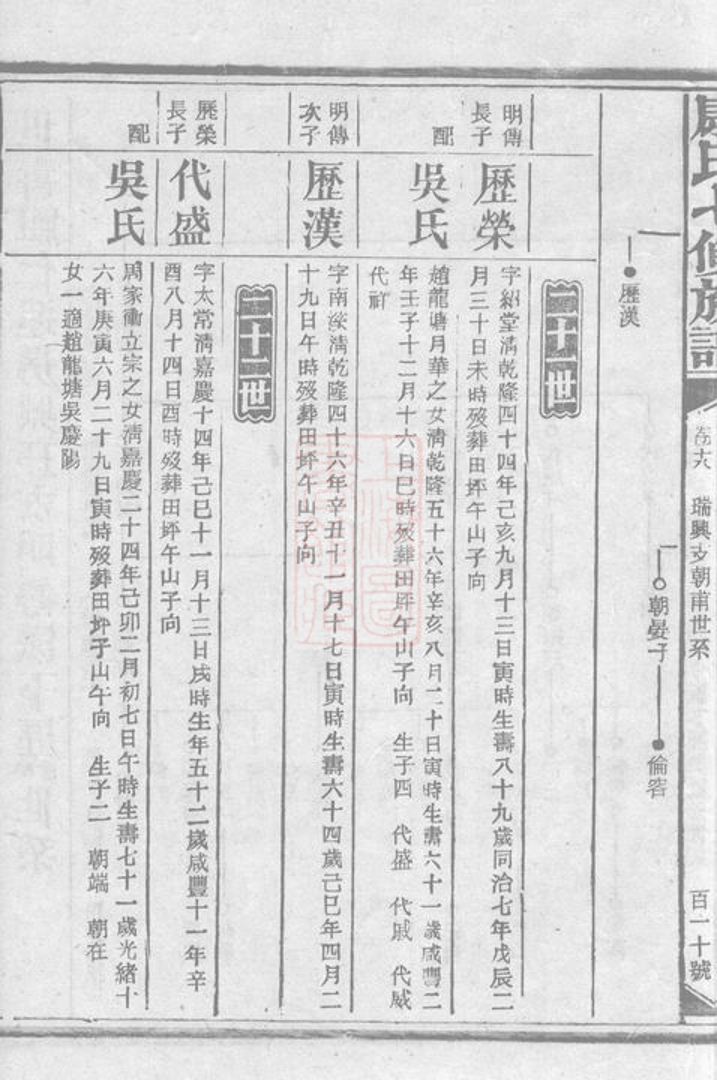 氏七修族譜
卷十八　瑞興支朝甫世系
百一十號
朝晏子　倫容
歷漢
二十一世
明傳長子
歷榮
字紹堂清乾隆四十四年己亥九月十三日寅時生壽八十九歲同治七年戊辰二
月三十日未時歿葬田坪午山子向
配
吳氏
趙龍塘月華之女清乾隆五十六年辛亥八月二十日寅時生壽六十一歲咸豐二
年壬子十二月十六日巳時歿葬田坪午山子向　生子四　代盛　代戚　代威
代祥
明傳次子
歷漢
字南　清乾隆四十六年辛丑十一月十七日寅時生壽六十四歲己巳年四月二
十九日午時歿葬田坪午山子向
二十二世
歷榮長子
代盛
字太常清嘉慶十四年己巳十一月十三日戌時生年五十二歲咸豐十一年辛
酉八月十四日酉時歿葬田坪午山子向
配
吳氏
周家衝立宗之女清嘉慶二十四年己卯二月初七日午時生壽七十一歲光緒十
六年庚寅六月二十九日寅時歿葬田坪子山午向　生子二　朝端　朝在
女一適趙龍塘吳慶陽